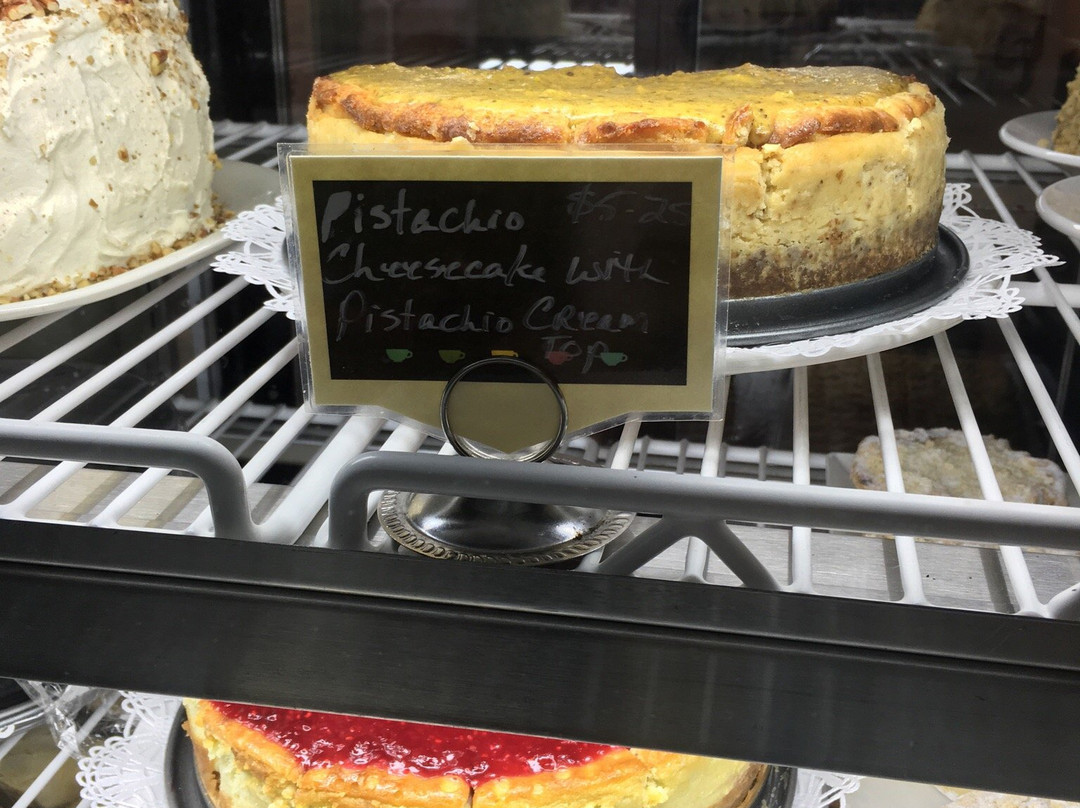 Pistachio $5-25
Cheesecake with
Pistachio Cream
Top